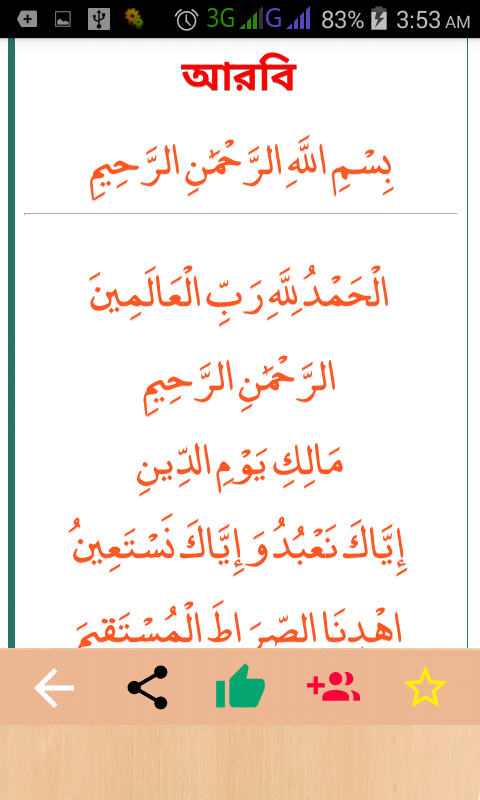 3G G 83% 3:53 AM
আরবি
بِسْمِ اللَّهِ الرَّحْمَٰنِ الرَّحِيمِ
الْحَمْدُ لِلَّهِ رَبِّ الْعَالَمِينَ
الرَّحْمَٰنِ الرَّحِيمِ
مَالِكِ يَوْمِ الدِّينِ
إِيَّاكَ نَعْبُدُ وَإِيَّاكَ نَسْتَعِينُ
اهْدِنَا الصِّرَاطَ الْمُسْتَقِيمَ